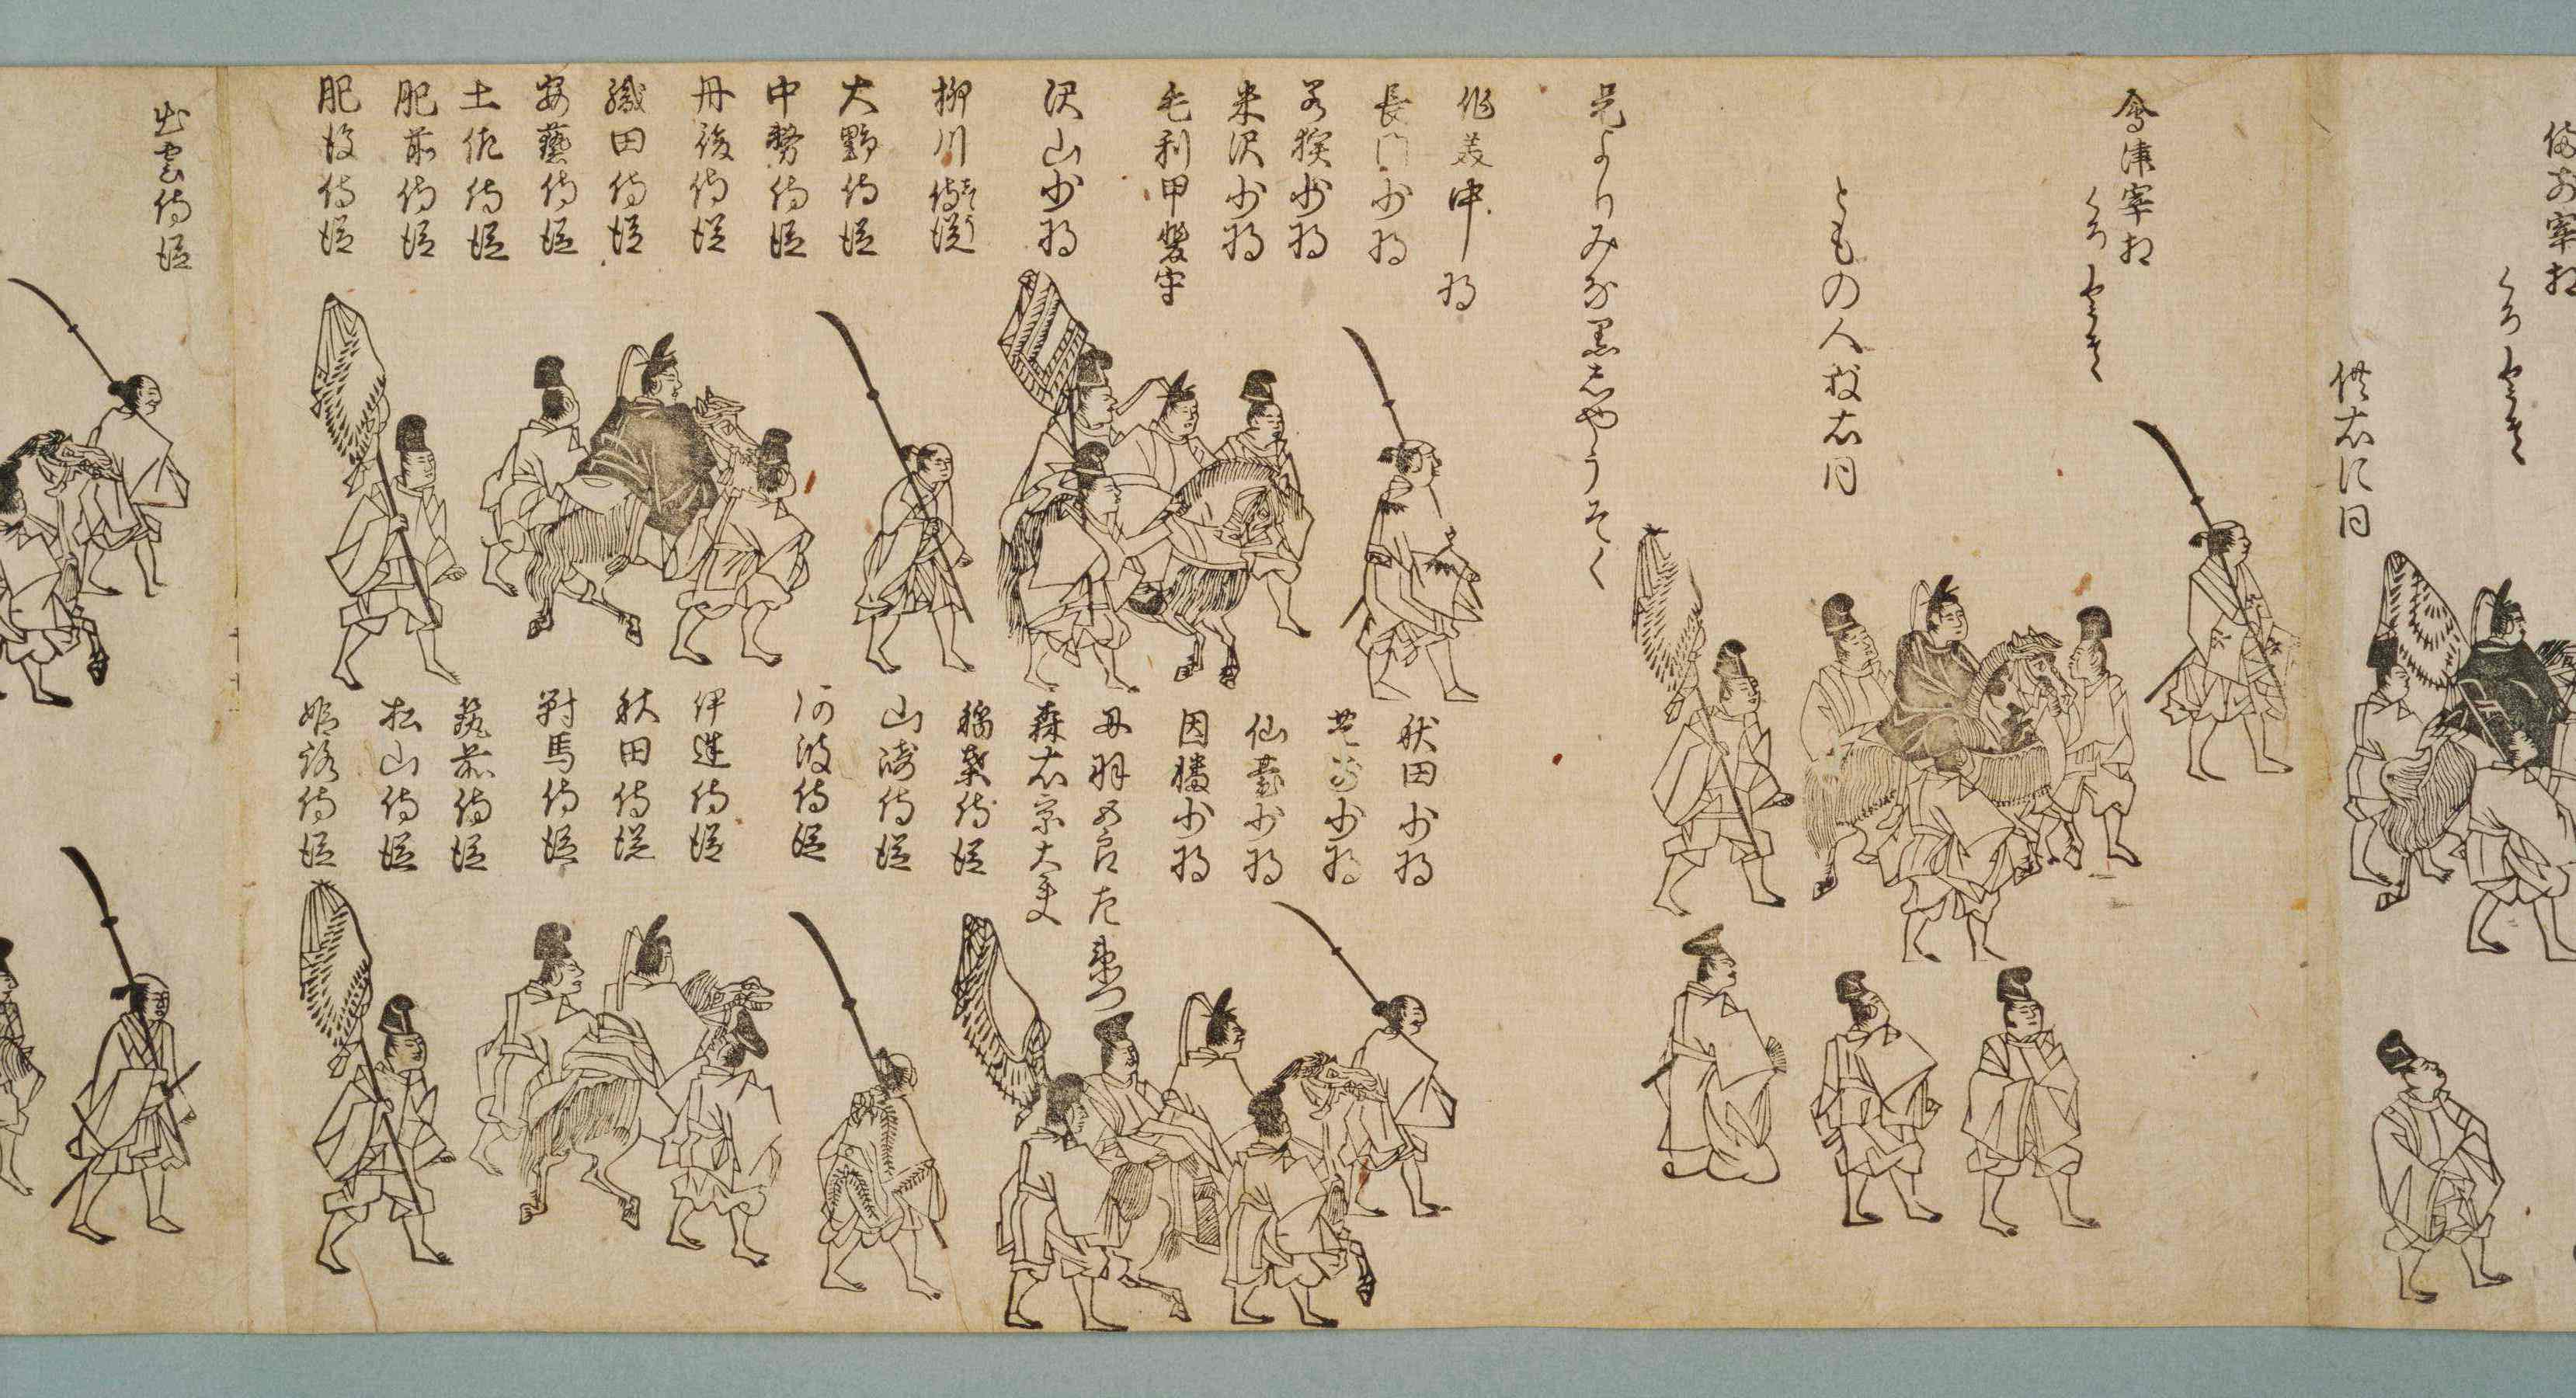 備前宰相
くろ
供右に同
會津宰相
くろ
ともの人数右同
是よりみな黒志やうそく
作美中将
長門少将
若狭少将
米沢少将
毛利甲斐守
沢山少将
柳川侍従
大野侍従
中努侍従
丹後侍従
織田侍従
安藝侍従
土佐侍従
肥前侍従
肥後侍従
秋田少将
少将
仙臺少将
因幡少将
丹羽五郎左衛門
森右京大夫
稲葉侍従
山崎侍従
阿波侍従
伊達侍従
秋田侍従
對馬侍従
筑前侍従
松山侍従
姫路侍従
出雲侍従